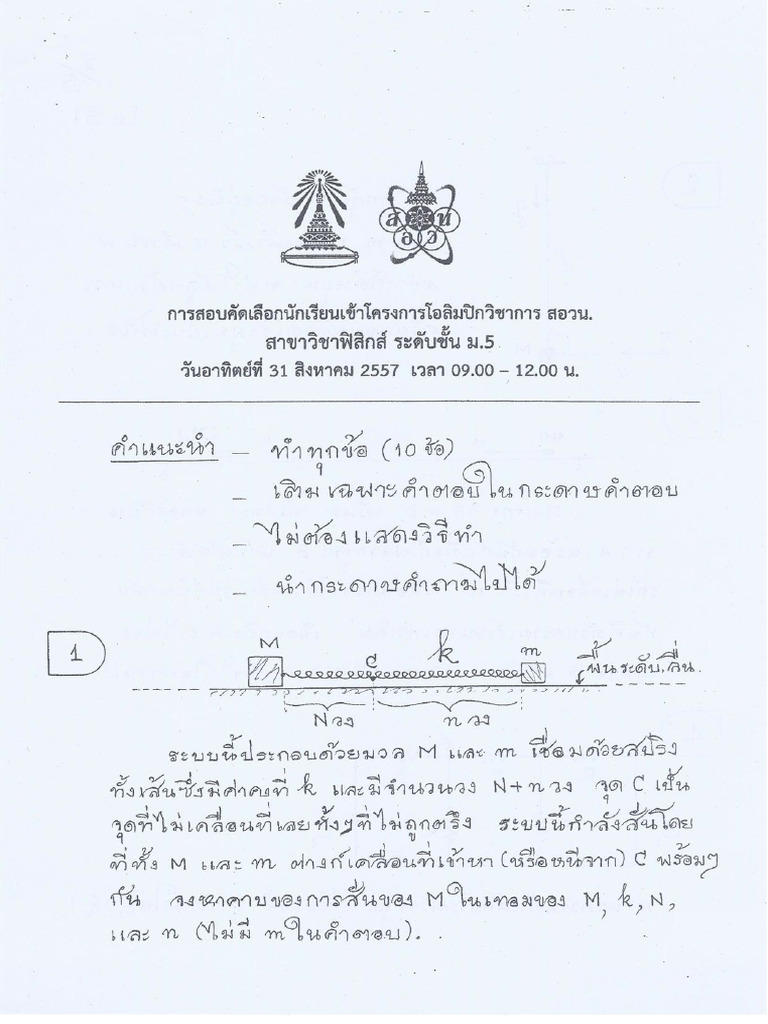 ส อ ว น
การสอบคัดเลือกนักเรียนเข้าโครงการโอลิมปิกวิชาการ สอวน.
สาขาวิชาฟิสิกส์ ระดับชั้น ม.5
วันอาทิตย์ที่ 31 สิงหาคม 2557 เวลา 09.00 – 12.00 น.
คำแนะนำ – ทำทุกข้อ (10 ข้อ)
– เติมเฉพาะคำตอบในกระดาษคำตอบ
– ไม่ต้องแสดงวิธีทำ
– นำกระดาษคำถามไปได้
1
M C k m พื้นระดับ, ลื่น.
N วง n วง
ระบบนี้ประกอบด้วยมวล M และ m เชื่อมด้วยสปริง
ทั้งเส้นซึ่งมีค่าคงที่ k และมีจำนวนวง N+n วง จุด C เป็น
จุดที่ไม่เคลื่อนที่เลยทั้งๆที่ไม่ถูกตรึง ระบบนี้กำลังสั่นโดย
ที่ทั้ง M และ m ต่างก็เคลื่อนที่เข้าหา (หรือหนีจาก) C พร้อมๆ
กัน จงหาคาบของการสั่นของ M ในเทอมของ M, k, N,
และ n (ไม่มี m ในคำตอบ).